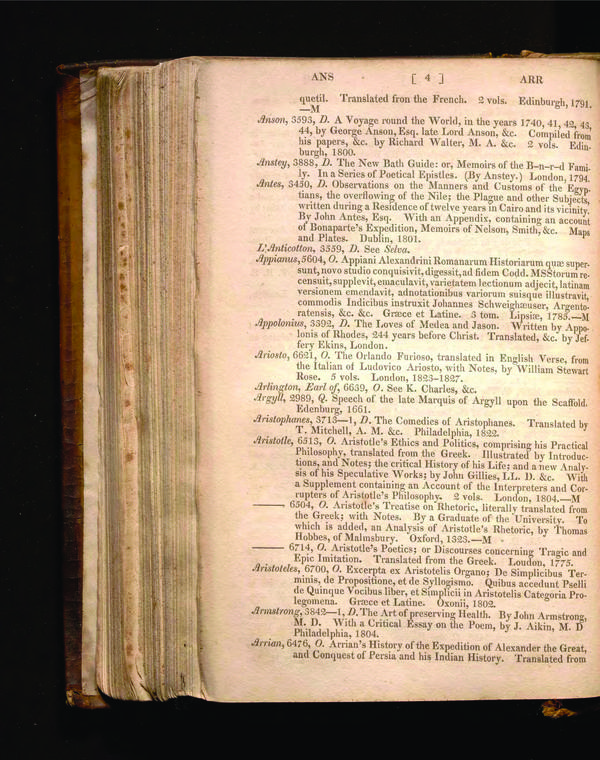 ANS [ 4 ] ARR
quetil. Translated fron the French. 2 vols. Edinburgh, 1791.
—M
Anson, 3593, D. A Voyage round the World, in the years 1740, 41, 42, 43,
44, by George Anson, Esq. late Lord Anson, &c. Compiled from
his papers, &c. by Richard Walter, M. A. &c. 2 vols. Edin-
burgh, 1800.
Anstey, 3888, D. The New Bath Guide: or, Memoirs of the B—n—r—d Fami-
ly. In a Series of Poetical Epistles. (By Anstey.) London, 1794.
Antes, 3450, D. Observations on the Manners and Customs of the Egyp-
tians, the overflowing of the Nile; the Plague and other Subjects,
written during a Residence of twelve years in Cairo and its vicinity.
By John Antes, Esq. With an Appendix, containing an account
of Bonaparte's Expedition, Memoirs of Nelson, Smith, &c. Maps
and Plates. Dublin, 1801.
L'Anticotton, 3559, D. See Selva.
Appianus, 5604, O. Appiani Alexandrini Romanarum Historiarum quæ super-
sunt, novo studio conquisivit, digessit, ad fidem Codd. MSStorum re-
censuit, supplevit, emaculavit, varietatem lectionum adjecit, latinam
versionem emendavit, adnotationibus variorum suisque illustravit,
commodis Indicibus instruxit Johannes Schweighæuser, Argento-
ratensis, &c. &c. Græce et Latine. 3 tom. Lipsiæ, 1785.—M
Appolonius, 3392, D. The Loves of Medea and Jason. Written by Appo-
lonis of Rhodes, 244 years before Christ. Translated, &c. by Jef-
fery Ekins, London.
Ariosto, 6621, O. The Orlando Furioso, translated in English Verse, from
the Italian of Ludovico Ariosto, with Notes, by William Stewart
Rose. 5 vols. London, 1823-1827.
Arlington, Earl of, 6639, O. See K. Charles, &c.
Argyll, 2989, Q. Speech of the late Marquis of Argyll upon the Scaffold.
Edenburg, 1661.
Aristophanes, 3713—1, D. The Comedies of Aristophanes. Translated by
T. Mitchell, A. M. &c. Philadelphia, 1822.
Aristotle, 6513, O. Aristotle's Ethics and Politics, comprising his Practical
Philosophy, translated from the Greek. Illustrated by Introduc-
tions, and Notes; the critical History of his Life; and a new Analy-
sis of his Speculative Works; by John Gillies, LL. D. &c. With
a Supplement containing an Account of the Interpreters and Cor-
rupters of Aristotle's Philosophy. 2 vols. London, 1804.—M
—— 6504, O. Aristotle's Treatise on Rhetoric, literally translated from
the Greek; with Notes. By a Graduate of the University. To
which is added, an Analysis of Aristotle's Rhetoric, by Thomas
Hobbes, of Malmsbury. Oxford, 1323.—M
—— 6714, O. Aristotle's Poetics; or Discourses concerning Tragic and
Epic Imitation. Translated from the Greek. London, 1775.
Aristoteles, 6700, O. Excerpta ex Aristotelis Organo; De Simplicibus Ter-
minis, de Propositione, et de Syllogismo. Quibus accedunt Pselli
de Quinque Vocibus liber, et Simplicii in Aristotelis Categoria Pro-
legomena. Græce et Latine. Oxonii, 1802.
Armstrong, 3842—1, D. The Art of preserving Health. By John Armstrong,
M. D. With a Critical Essay on the Poem, by J. Aikin, M. D
Philadelphia, 1804.
Arrian, 6476, O. Arrian's History of the Expedition of Alexander the Great,
and Conquest of Persia and his Indian History. Translated from